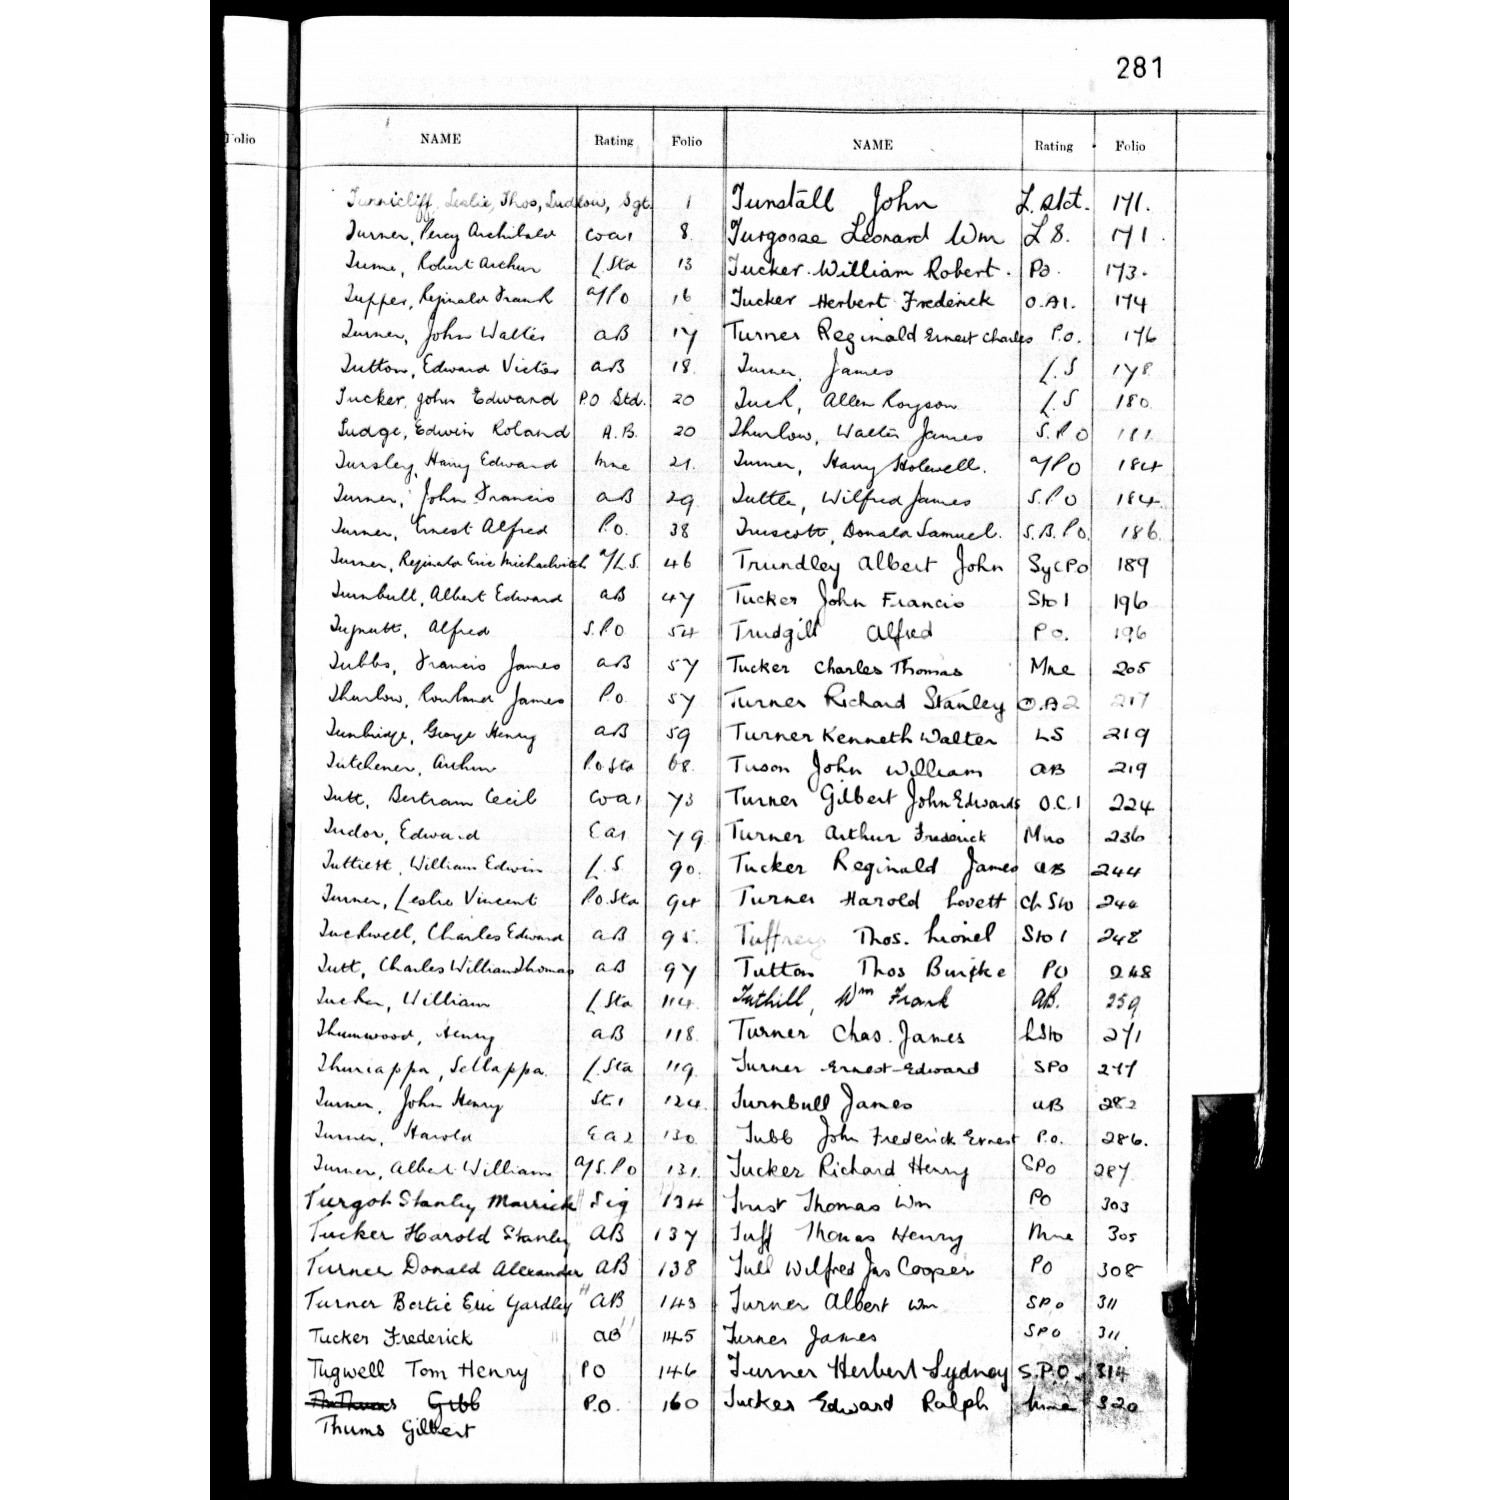 281
Folio
NAME Rating Folio NAME Rating Folio
Tunnicliff, Leslie, Thos, Ludlow, Sgt. 1
Turner, Percy Archibald 8
Robert Arthur L Sto 13
Tupper, Reginald Frank a/PO 16
Turner, John Walter AB 17
Tutton, Edward Victor AB 18
Tucker, John Edward P.O Std. 20
Tudge, Edwin Roland A.B. 20
Tunsley, Harry Edward Mne 21.
Turner, John Francis AB 29
Turner, Ernest Alfred P.O. 38
Turner, Reginald Eric a/L.S. 46
Turnbull, Albert Edward AB 47
Alfred S.P.O 54
Tubbs, Francis James AB 57
Thurlow, Rowland James P.O. 57
Tunbridge, George Henry AB 59
Tutchener, Arthur P.O Sto 68.
Tutt, Bertram Cecil 73
Tudor, Edward E A1 79
Tuttiett, William Edwin L.S 90.
Turner, Leslie Vincent P.O. Sto 94
Tuckwell, Charles Edward AB 95.
Tutt, Charles William Thomas AB 97
Tucker, William L Sto 114.
Thumwood, Henry AB 118.
Thuriappa, Sellappa. L. Sto 119.
Turner, John Henry St. 1 124.
Turner, Harold E A 2 130
Turner, Albert William a/S.P.O 131.
Turgot Stanley Marrick Sig 134
Tucker Harold Stanley AB 137
Turner Donald Alexander AB 138
Turner Bertie Eric Yardley AB 143
Tucker Frederick AB 145
Tugwell Tom Henry PO 146
Gibb P.O. 160
Thums Gilbert
Tunstall John 171.
Turgoose Leonard Wm L S. 171.
Tucker William Robert. PO. 173.
Tucker Herbert Frederick O.A1. 174
Turner Reginald Ernest Charles P.O. 176
Turner, James L.S 178
Tuck, Allen Royson L.S 180
Thurlow, Walter James S.P.O 181
Turner, Harry Holwell. a/PO 184
Tuttle, Wilfred James S.P.O 184.
Truscott, Donald Samuel. S.B.P.O. 186.
Trundley Albert John SyCPO 189
Tucker John Francis Sto 1 196
Trudgill Alfred PO. 196
Tucker Charles Thomas Mne 205
Turner Richard Stanley O.A2 217
Turner Kenneth Walter LS 219
Tuson John William AB 219
Turner Gilbert John Edwards O.C.1 224
Turner Arthur Frederick Mne 236
Tucker Reginald James AB 244
Turner Harold Lovett Ch Sto 244
Tuffrey Thos. Lionel Sto 1 248
Tutton Thos PO 248
Tuthill, Wm Frank AB. 259
Turner Chas. James LSto 271
Turner Ernest Edward SPO 277
Turnbull James AB 282
Tubb John Frederick Ernest P.O. 286.
Tucker Richard Henry SPO 287
Trust Thomas Wm PO 303
Tuff Thomas Henry Mne 305
Tull Wilfred Jas Cooper PO 308
Turner Albert Wm SPO 311
Turner James SPO 311
Turner Herbert Sydney S.P.O. 314
Tucker Edward Ralph Mne 320